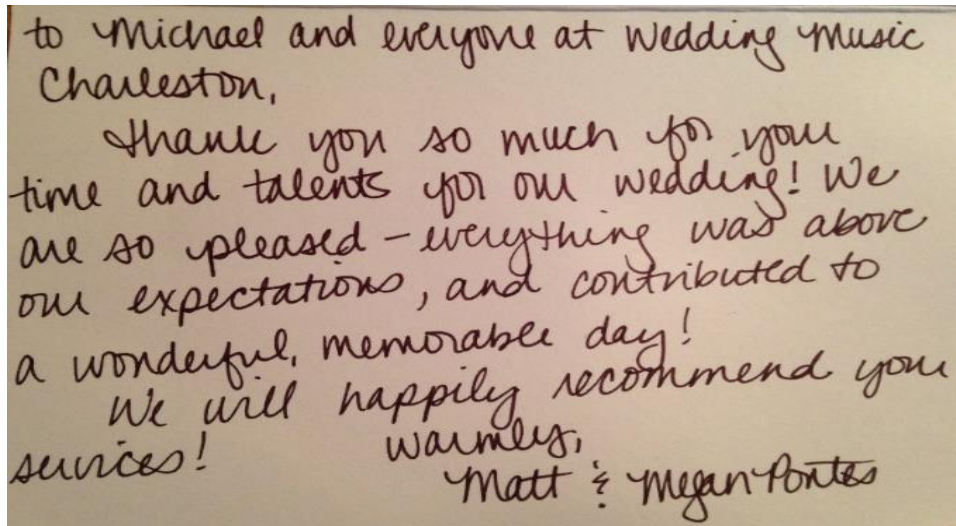 to Michael and everyone at Wedding Music
Charleston,
Thank you so much for your
time and talents for our wedding! We
are so pleased - everything was above
our expectations, and contributed to
a wonderful, memorable day!
We will happily recommend your
services!
Warmly,
Matt & Megan Pontes